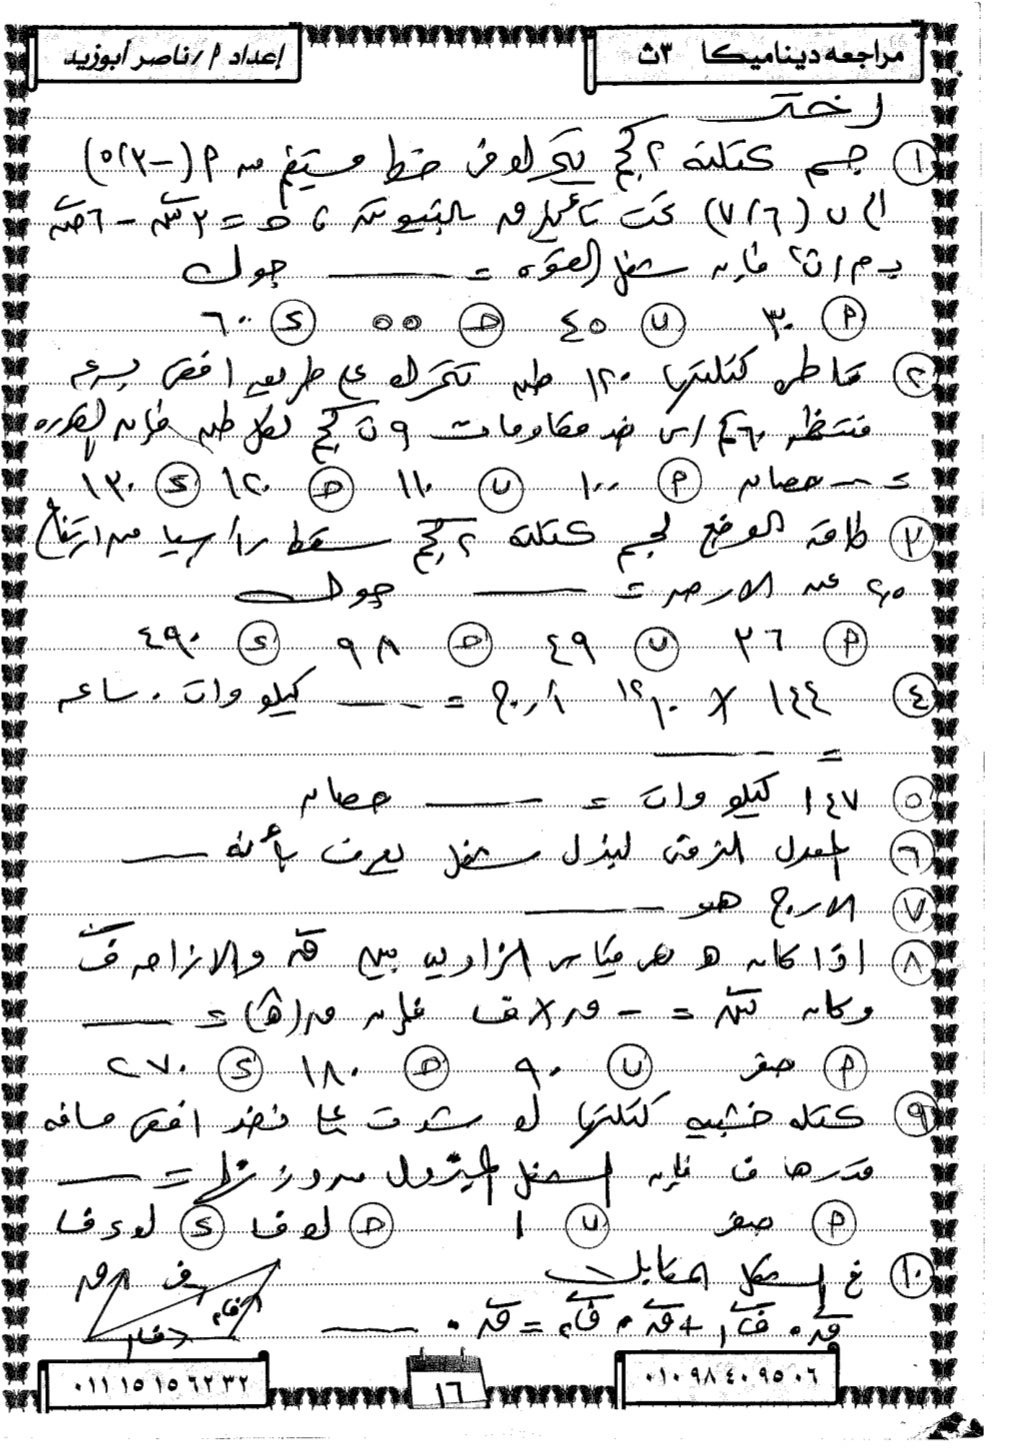 مراجعه ديناميكا ٣ث
إعداد م/ ناصر أبوزيد
اختر
١ جسم كتلته ٢ كجم يتحرك فى خط مستقيم من م (-٣، ٥)
الى ب (٦، ٧) تحت تأثير قوة بالنيوتن
فإن شغل القوه = ـــــ جول
م ٣٠ ب ٤٥ حـ ٥٥ ء ٦٠
٢ قاطره كتلتها ١٢٠ طن تتحرك على طريق افقى بسرعه
منتظمه ٦٠ كم/س ضد مقاومات ٩ ث كجم لكل طن فإن القدره
= ــ حصان م ١٠٠ ب ١١٠ حـ ١٢٠ ء ١٣٠
٣ طاقة الوضع لجسم كتلته ٢ كجم سقط رأسيا من ارتفاع
٥م عن الارض = ـــــ جول
م ٣٦ ب ٤٩ حـ ٩٨ ء ٤٩٠
٤ ١٤٤ × ١٠^١٢ أرج = ـــــ كيلو وات . ساعه
= ـــــ
٥ ١٤٧ كيلو وات = ـــــ حصان
٦ المعدل الزمنى لبذل شغل يعرف بأنه ـــــ
٧ الارج هو ـــــ
٨ اذا كان هـ هى قياس الزاويه بين ق والازاحه ف
وكان ش = - ق × ف فإن ق(هـ) = ـــــ
م صفر ب ٩٠ حـ ١٨٠ ء ٢٧٠
٩ كتله خشبيه كتلتها ك شدت على نضد افقى مسافه
قدرها ف فإن الشغل المبذول من وزنها = ـــــ
م صفر ب ١ حـ ك ف ء ك ء ف
١٠ فى الشكل المقابل
ف ق
ف١ ف٢
ق . ف١ + ق . ف٢ = ق . ـــــ
٠١٠٩٨٤٠٩٥٠٦
١٦
٠١١١٥١٥٦٢٣٢